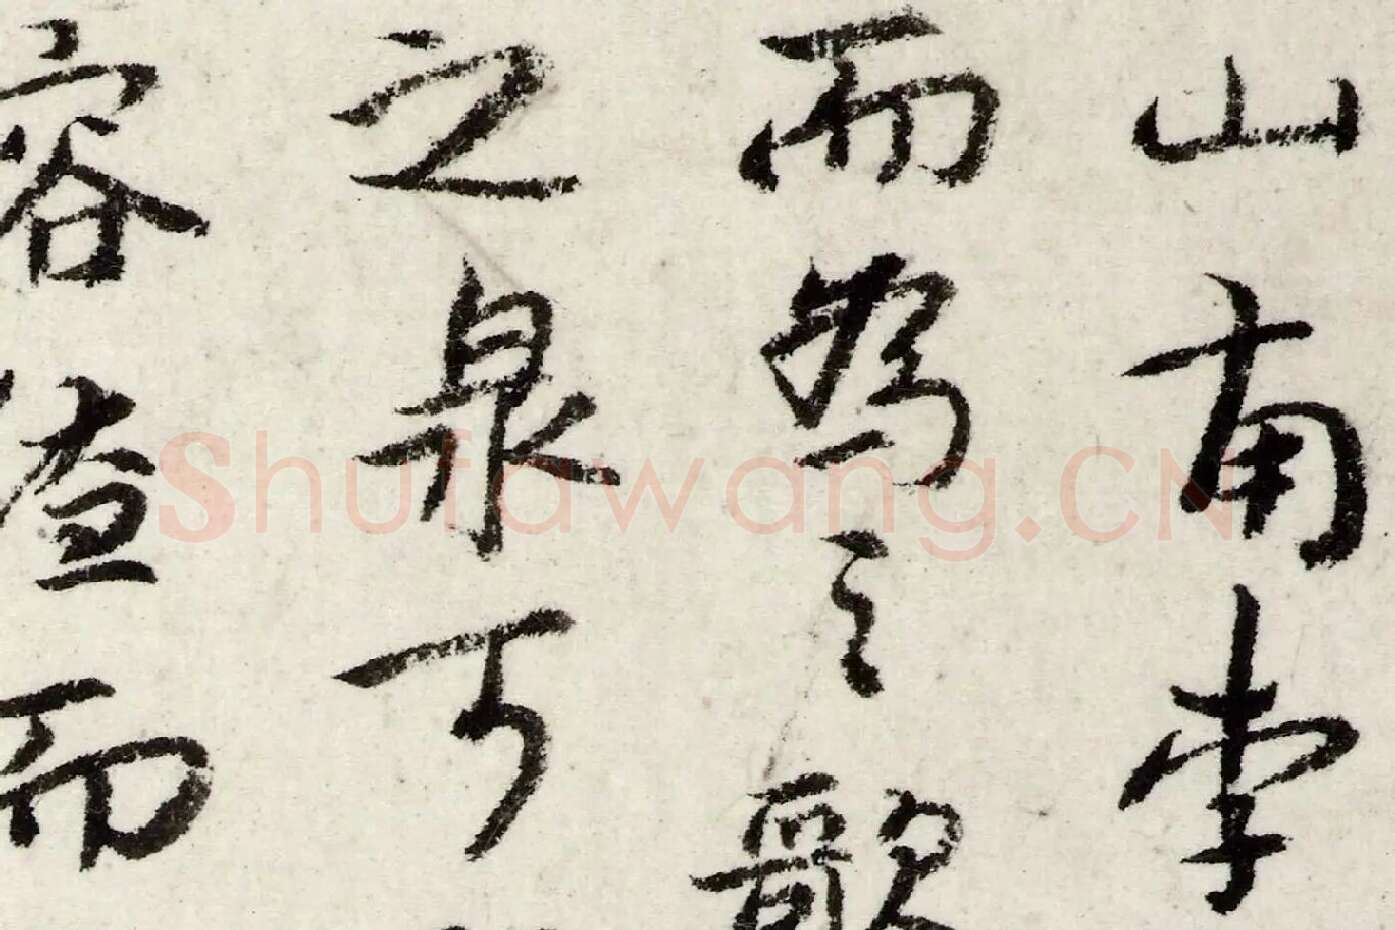 山南李
而為之歌
之泉可
容繚而
Shufawang.CN